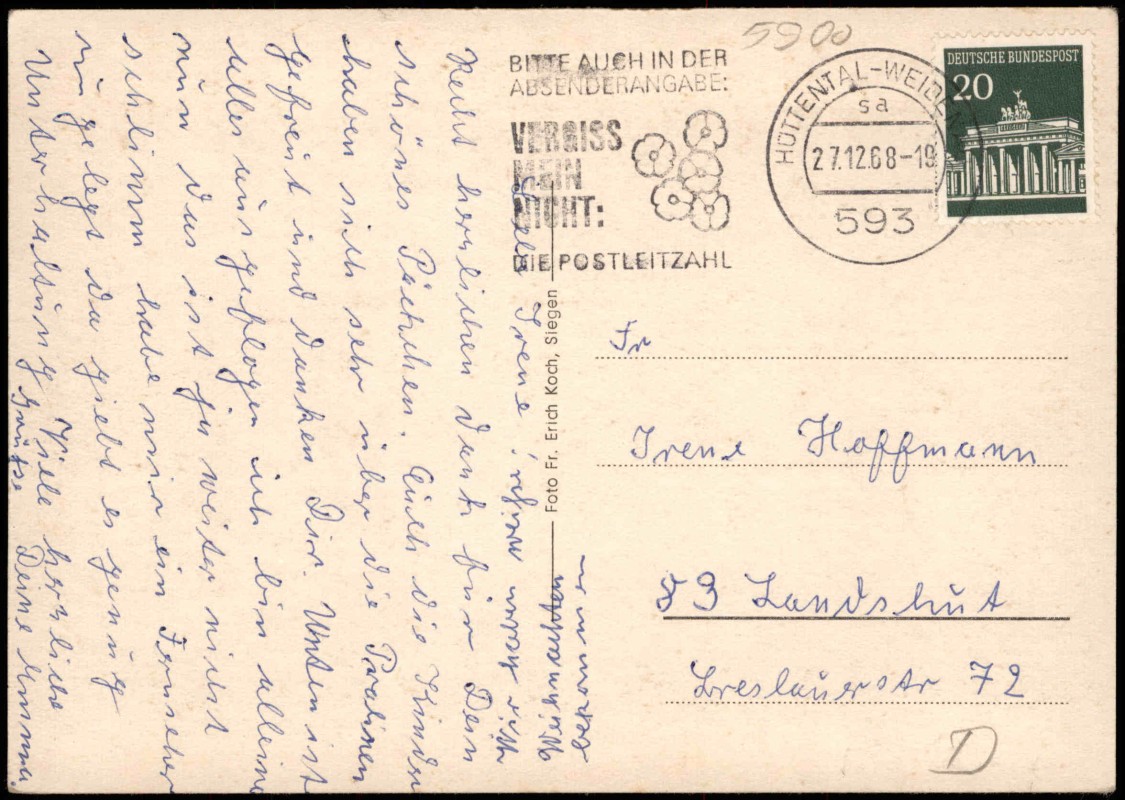 5900
BITTE AUCH IN DER
ABSENDERANGABE:
VERGISS
MEIN
NICHT:
DIE POSTLEITZAHL
HÜTTENTAL-WEIDENAU
sa
27.12.68-19
593
DEUTSCHE BUNDESPOST
20
Foto Fr. Erich Koch, Siegen
Liebe Irene!
Recht herzlichen Dank für Dein
schönes Päckchen. Auch die Kinder
haben sich sehr über die Pralinen
gefreut und danken Dir. Unten ist
alles ausgeflogen ich bin alleine
nun das ist ja weiter nicht
schlimm habe mir ein Fernseher
zu gelegt da giebt es genug
Unterhaltung Viele herzliche
Grüsse Deine Emma.
Weihnachten
Fr
Irene Hoffmann
83 Landshut
Breslauerstr 72
D